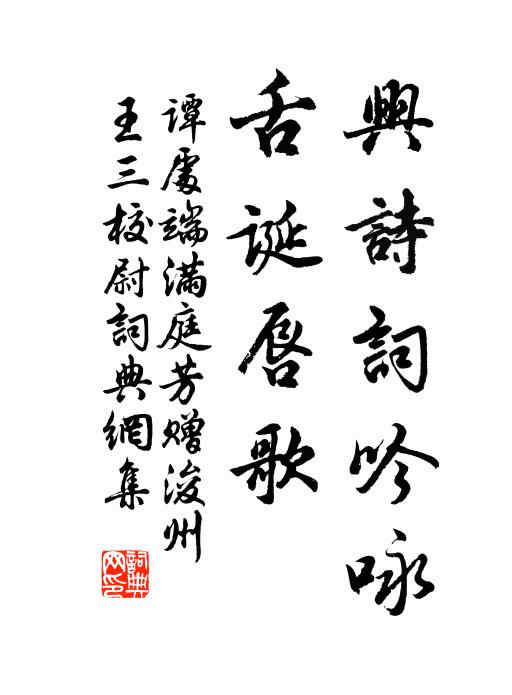 興詩詞吟咏
舌誕唇歌
谭處端滿庭芳赠浚州
王三校尉詞典網集
詞典网印